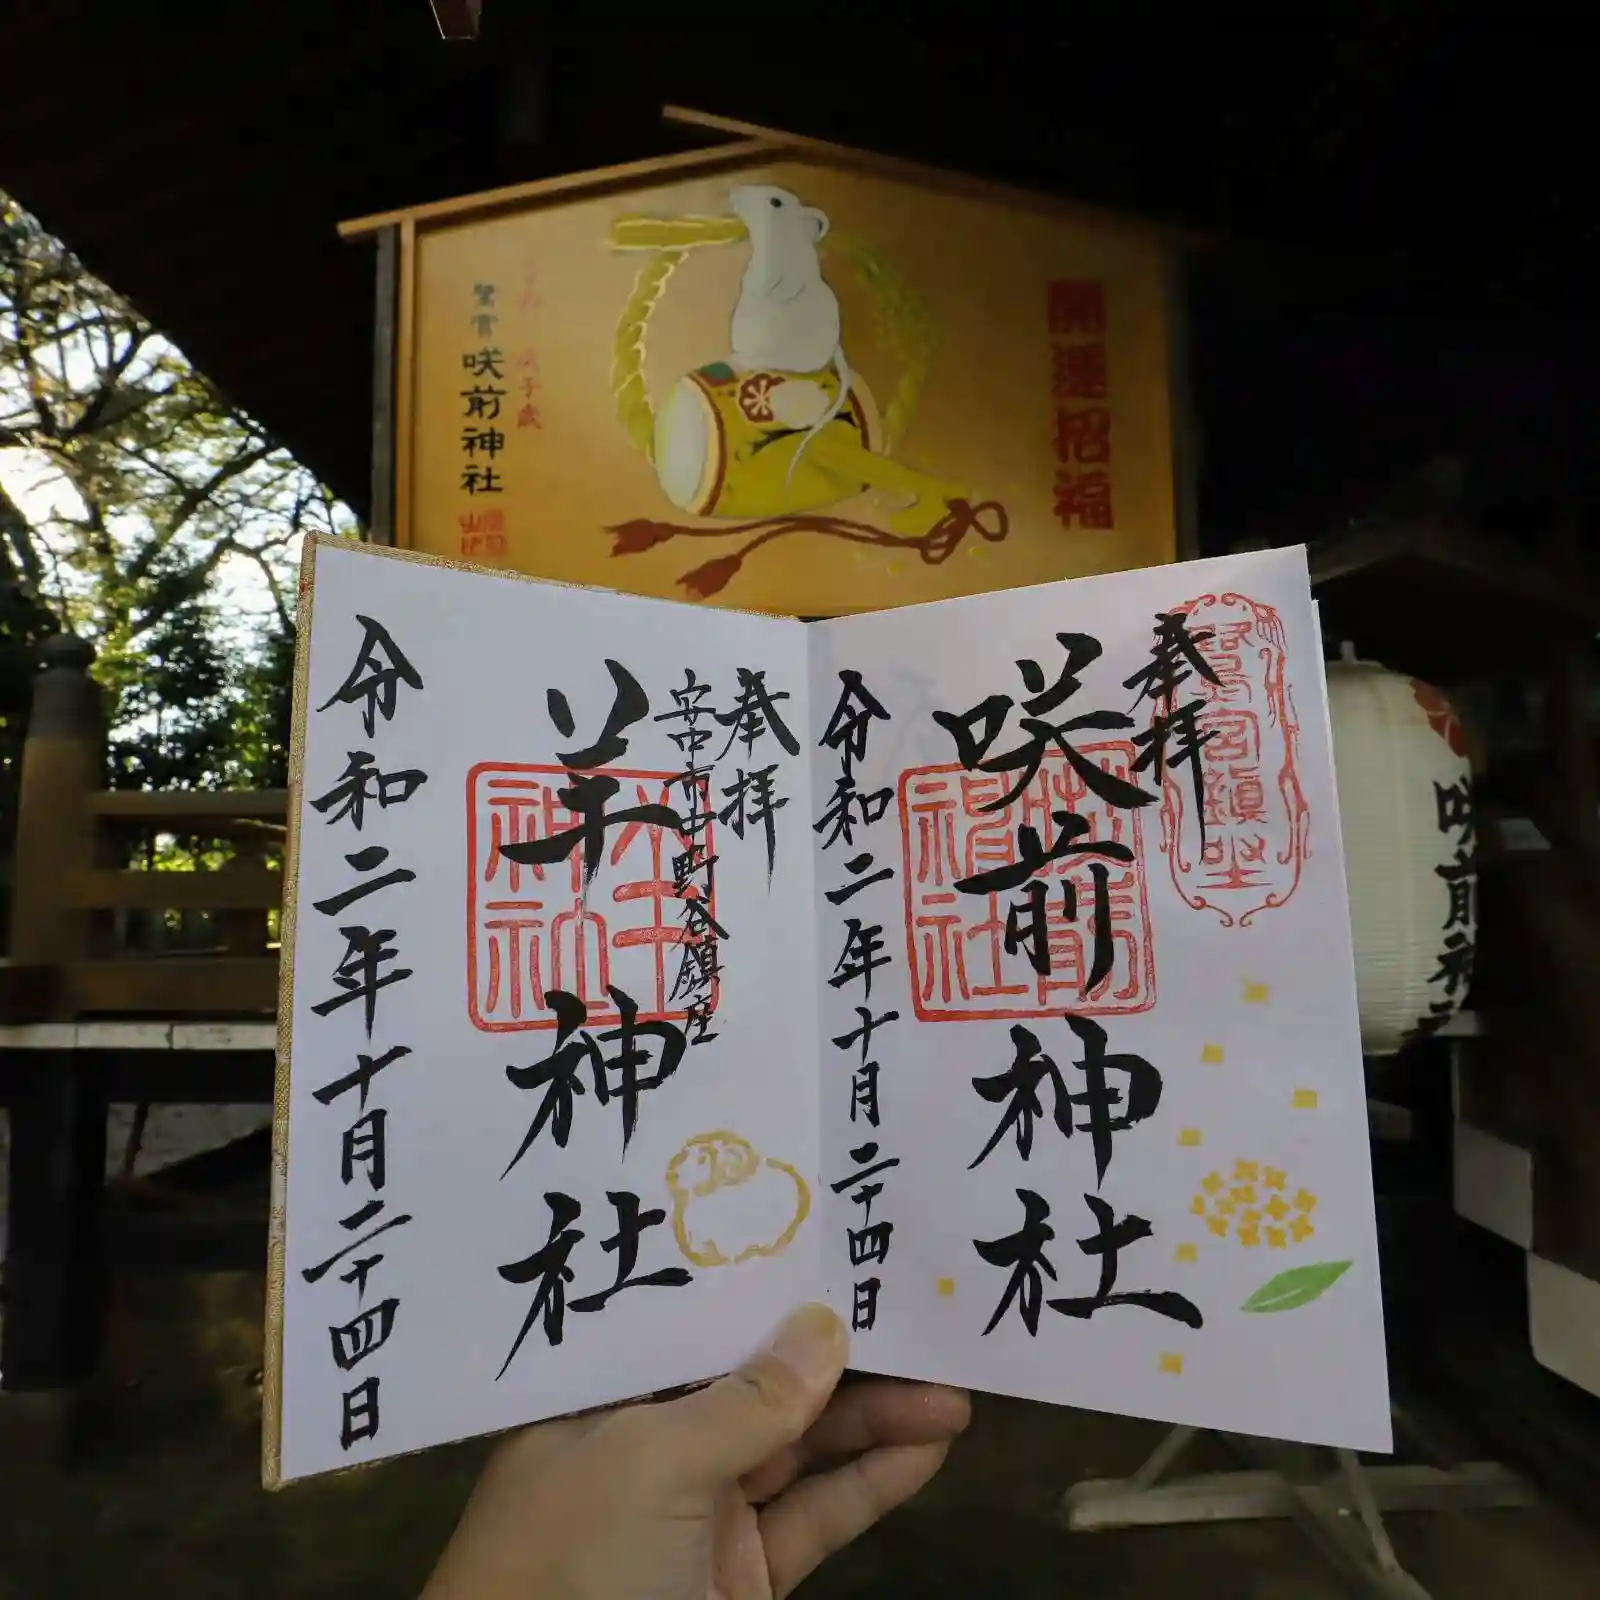 開運招福
子歳
鷺宮
咲前神社
奉拝
鷺宮鎮座
咲前神社
咲前神社
令和二年十月二十四日
奉拝
安中市中野谷鎮座
羊神社
羊神社
令和二年十月二十四日
咲前神社